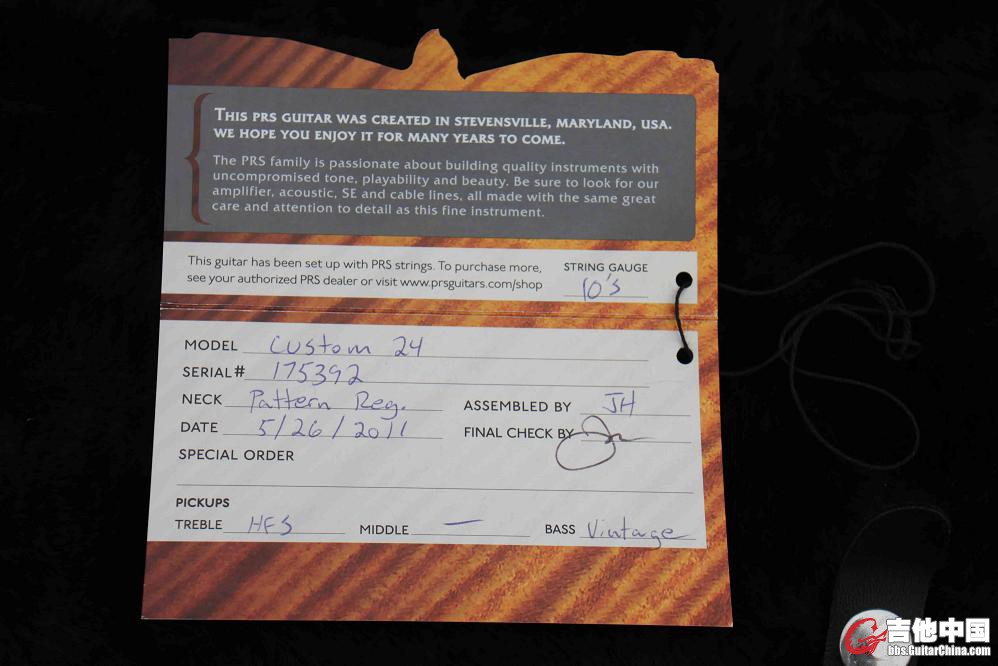 THIS PRS GUITAR WAS CREATED IN STEVENSVILLE, MARYLAND, USA.
WE HOPE YOU ENJOY IT FOR MANY YEARS TO COME.
The PRS family is passionate about building quality instruments with
uncompromised tone, playability and beauty. Be sure to look for our
amplifier, acoustic, SE and cable lines, all made with the same great
care and attention to detail as this fine instrument.
This guitar has been set up with PRS strings. To purchase more,
see your authorized PRS dealer or visit www.prsguitars.com/shop
STRING GAUGE
10's
MODEL Custom 24
SERIAL# 175392
NECK Pattern Reg.
ASSEMBLED BY JH
DATE 5/26/2011
FINAL CHECK BY
SPECIAL ORDER
PICKUPS
TREBLE HFS MIDDLE — BASS Vintage
吉他中国
bbs.GuitarChina.com